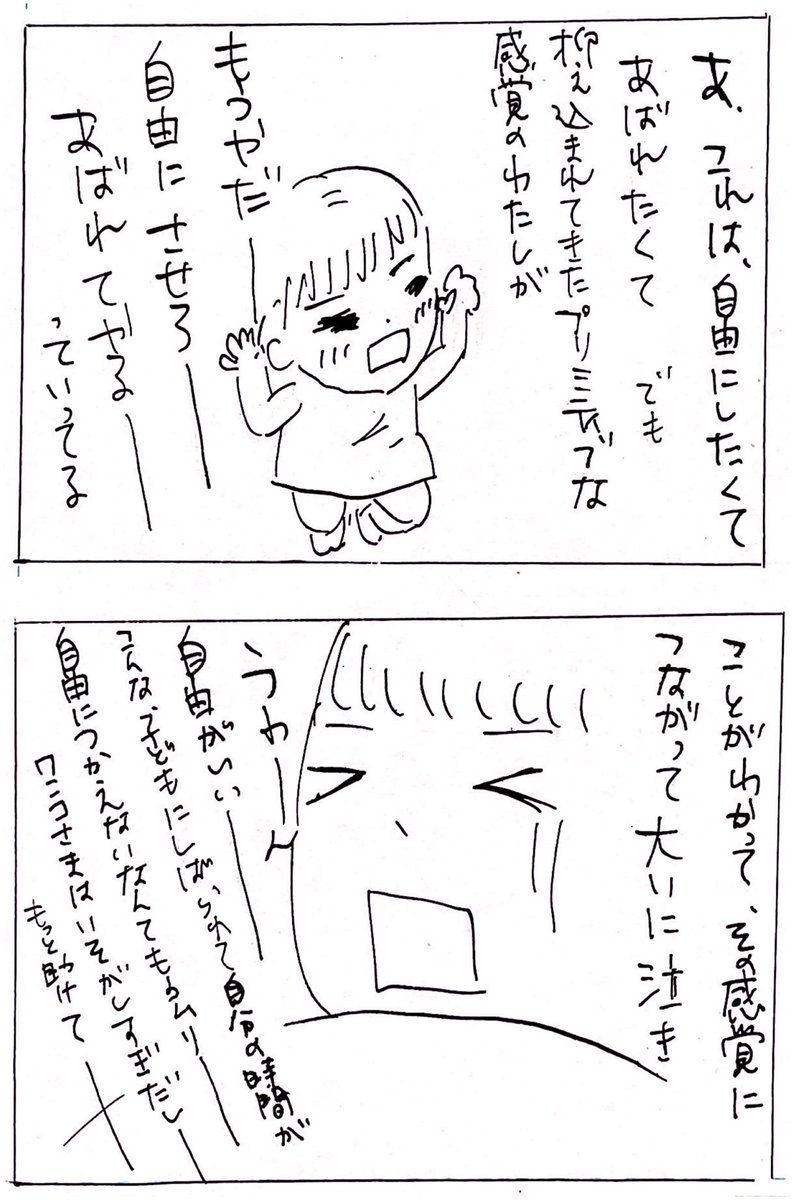 あ、これは、自由にしたくて
あばれたくて でも
抑え込まれてきたプリミティブな
感覚のわたしが
もうやだ―
自由に させろ―
あばれてやる―
っていってる
ことがわかって、その感覚に
つながって 大いに泣き
うわーん
自由がいい―
こんな、子どもにしばられて自分の時間が
自由につかえないなんてもうムリ―
ワニコさまはいそがしすぎだし―
もっと助けて―